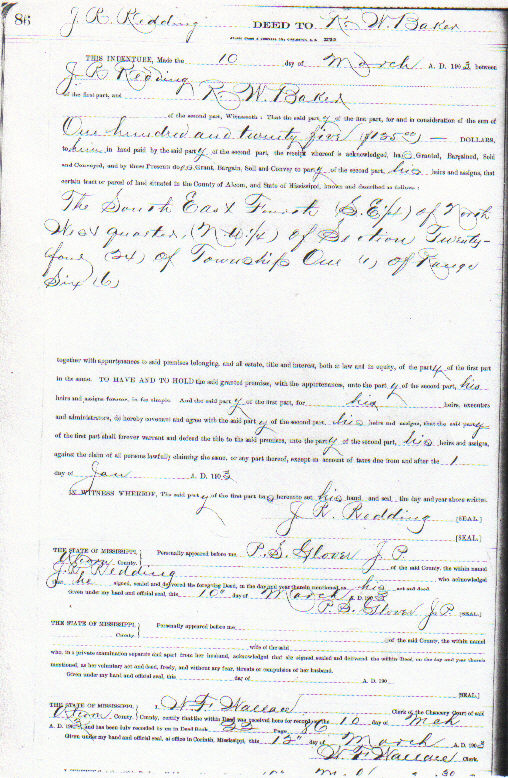 86
J. R. Redding DEED TO R. W. Baker
THIS INDENTURE, Made the 10 day of March A. D. 1903 between
J R Redding
of the first part, and R. W. Baker
of the second part, Witnesseth: That the said party of the first part, for and in consideration of the sum of
One hundred and twenty five ($125.00) — DOLLARS,
to him in hand paid by the said party of the second part, the receipt whereof is acknowledged, has Granted, Bargained, Sold
and Conveyed, and by these Presents does Grant, Bargain, Sell and Convey to party of the second part, his heirs and assigns, that
certain tract or parcel of land situated in the County of Alcorn, and State of Mississippi, known and described as follows:
The South East Fourth (S.E./4) of North
West quarter (N.W./4) of Section Twenty-
four (24) of Township One (1) of Range
Six (6)
together with appurtenances to said premises belonging, and all estate, title and interest, both at law and in equity, of the party of the first part
in the same. TO HAVE AND TO HOLD the said granted premises, with the appurtenances, unto the party of the second part, his
heirs and assigns forever, in fee simple. And the said party of the first part, for his heirs, executors
and administrators, do hereby covenant and agree with the said party of the second part, his heirs and assigns, that the said party
of the first part shall forever warrant and defend the title to the said premises, unto the party of the second part, his heirs and assigns,
against the claim of all persons lawfully claiming the same, or any part thereof, except on account of taxes due from and after the 1
day of Jan A. D. 1903
IN WITNESS WHEREOF, The said party of the first part has hereunto set his hand and seal the day and year above written.
J. R. Redding [SEAL]
[SEAL]
THE STATE OF MISSISSIPPI, Personally appeared before me, P. S. Glover J P
Alcorn County. of the said County, the within named
J. R. Redding who acknowledged
that he signed, sealed and delivered the foregoing Deed, on the day and year therein mentioned as his act and deed
Given under my hand and official seal, this 10th day of March A. D. 1903
P. S. Glover J.P. [SEAL]
THE STATE OF MISSISSIPPI Personally appeared before me,
County. of the said County, the within named
wife of the said
who, in a private examination separate and apart from her husband, acknowledged that she signed sealed and delivered the within Deed, on the day and year therein
mentioned, as her voluntary act and deed, freely, and without any fear, threats or compulsion of her husband.
Given under my hand and official seal, this day of A. D. 190
[SEAL]
THE STATE OF MISSISSIPPI, W. F. Wallace Clerk of the Chancery Court of said
Alcorn County. County, certify that the within Deed was received here for record on the 10 day of Mch
A. D. 1903 and has been duly recorded by me in Deed Book 22 Page 86
Given under my hand and official seal, at office in Corinth, Mississippi, this 12th day of March A. D. 1903
W. F. Wallace Clerk.